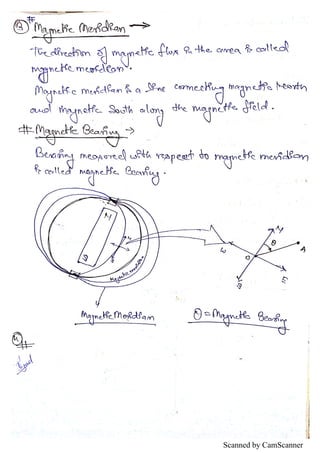 # Magnetic Meridian →
-The direction of magnetic flux in the area is called
magnetic meridian.
Magnetic meridian is a line connecting magnetic North
and magnetic South along the magnetic field.
# Magnetic Bearing →
Bearing measured with respect to magnetic meridian
is called magnetic Bearing.
N
S
Magnetic meridian
N
θ
A
W
O
S
E
Magnetic Meridian
θ = Magnetic Bearing
#
Scanned by CamScanner